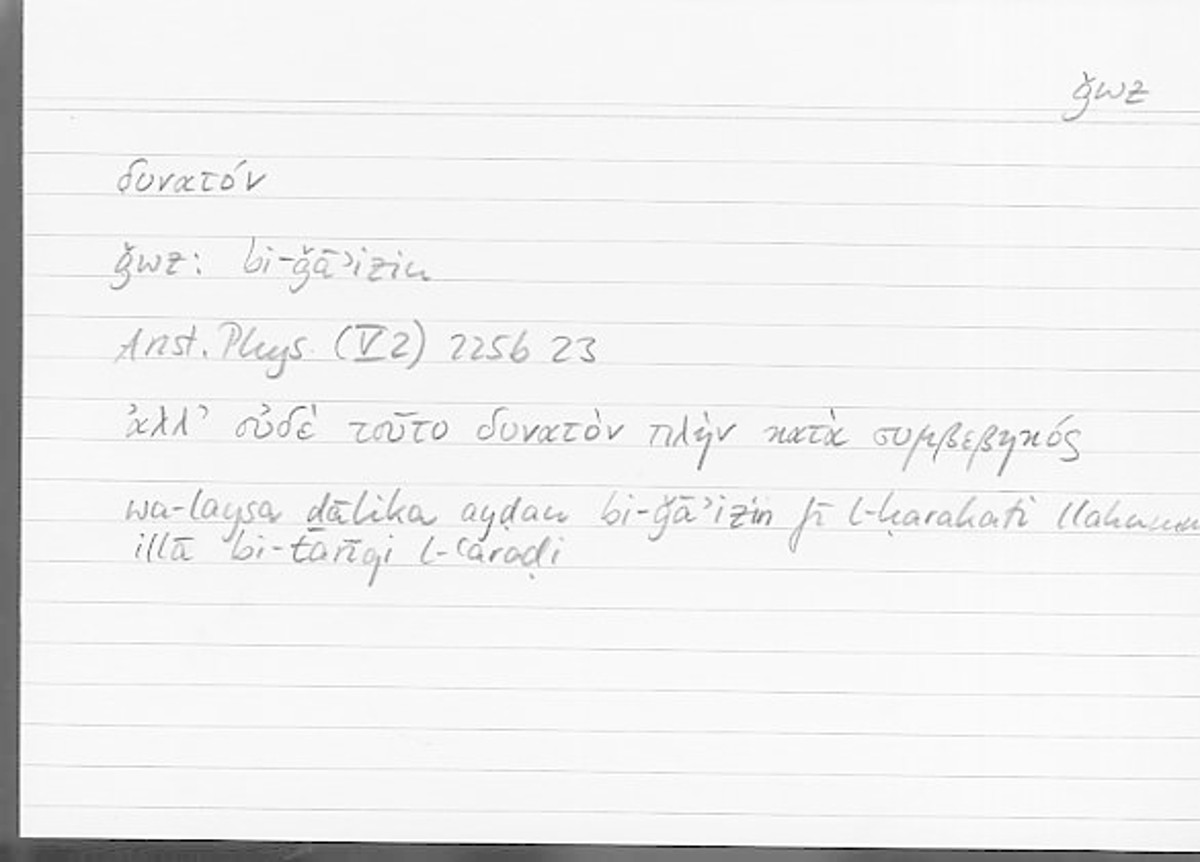 ǧwz
δυνατόν
ǧwz: bi-ǧāʾizin
Arist. Phys. (V 2) 225b 23
ἀλλ’ οὐδὲ τοῦτο δυνατὸν πλὴν κατὰ συμβεβηκός
wa-laysa ḏālika ayḍan bi-ǧāʾizin fī l-ḥarakati
illā bi-ṭarīqi l-ʿaraḍi